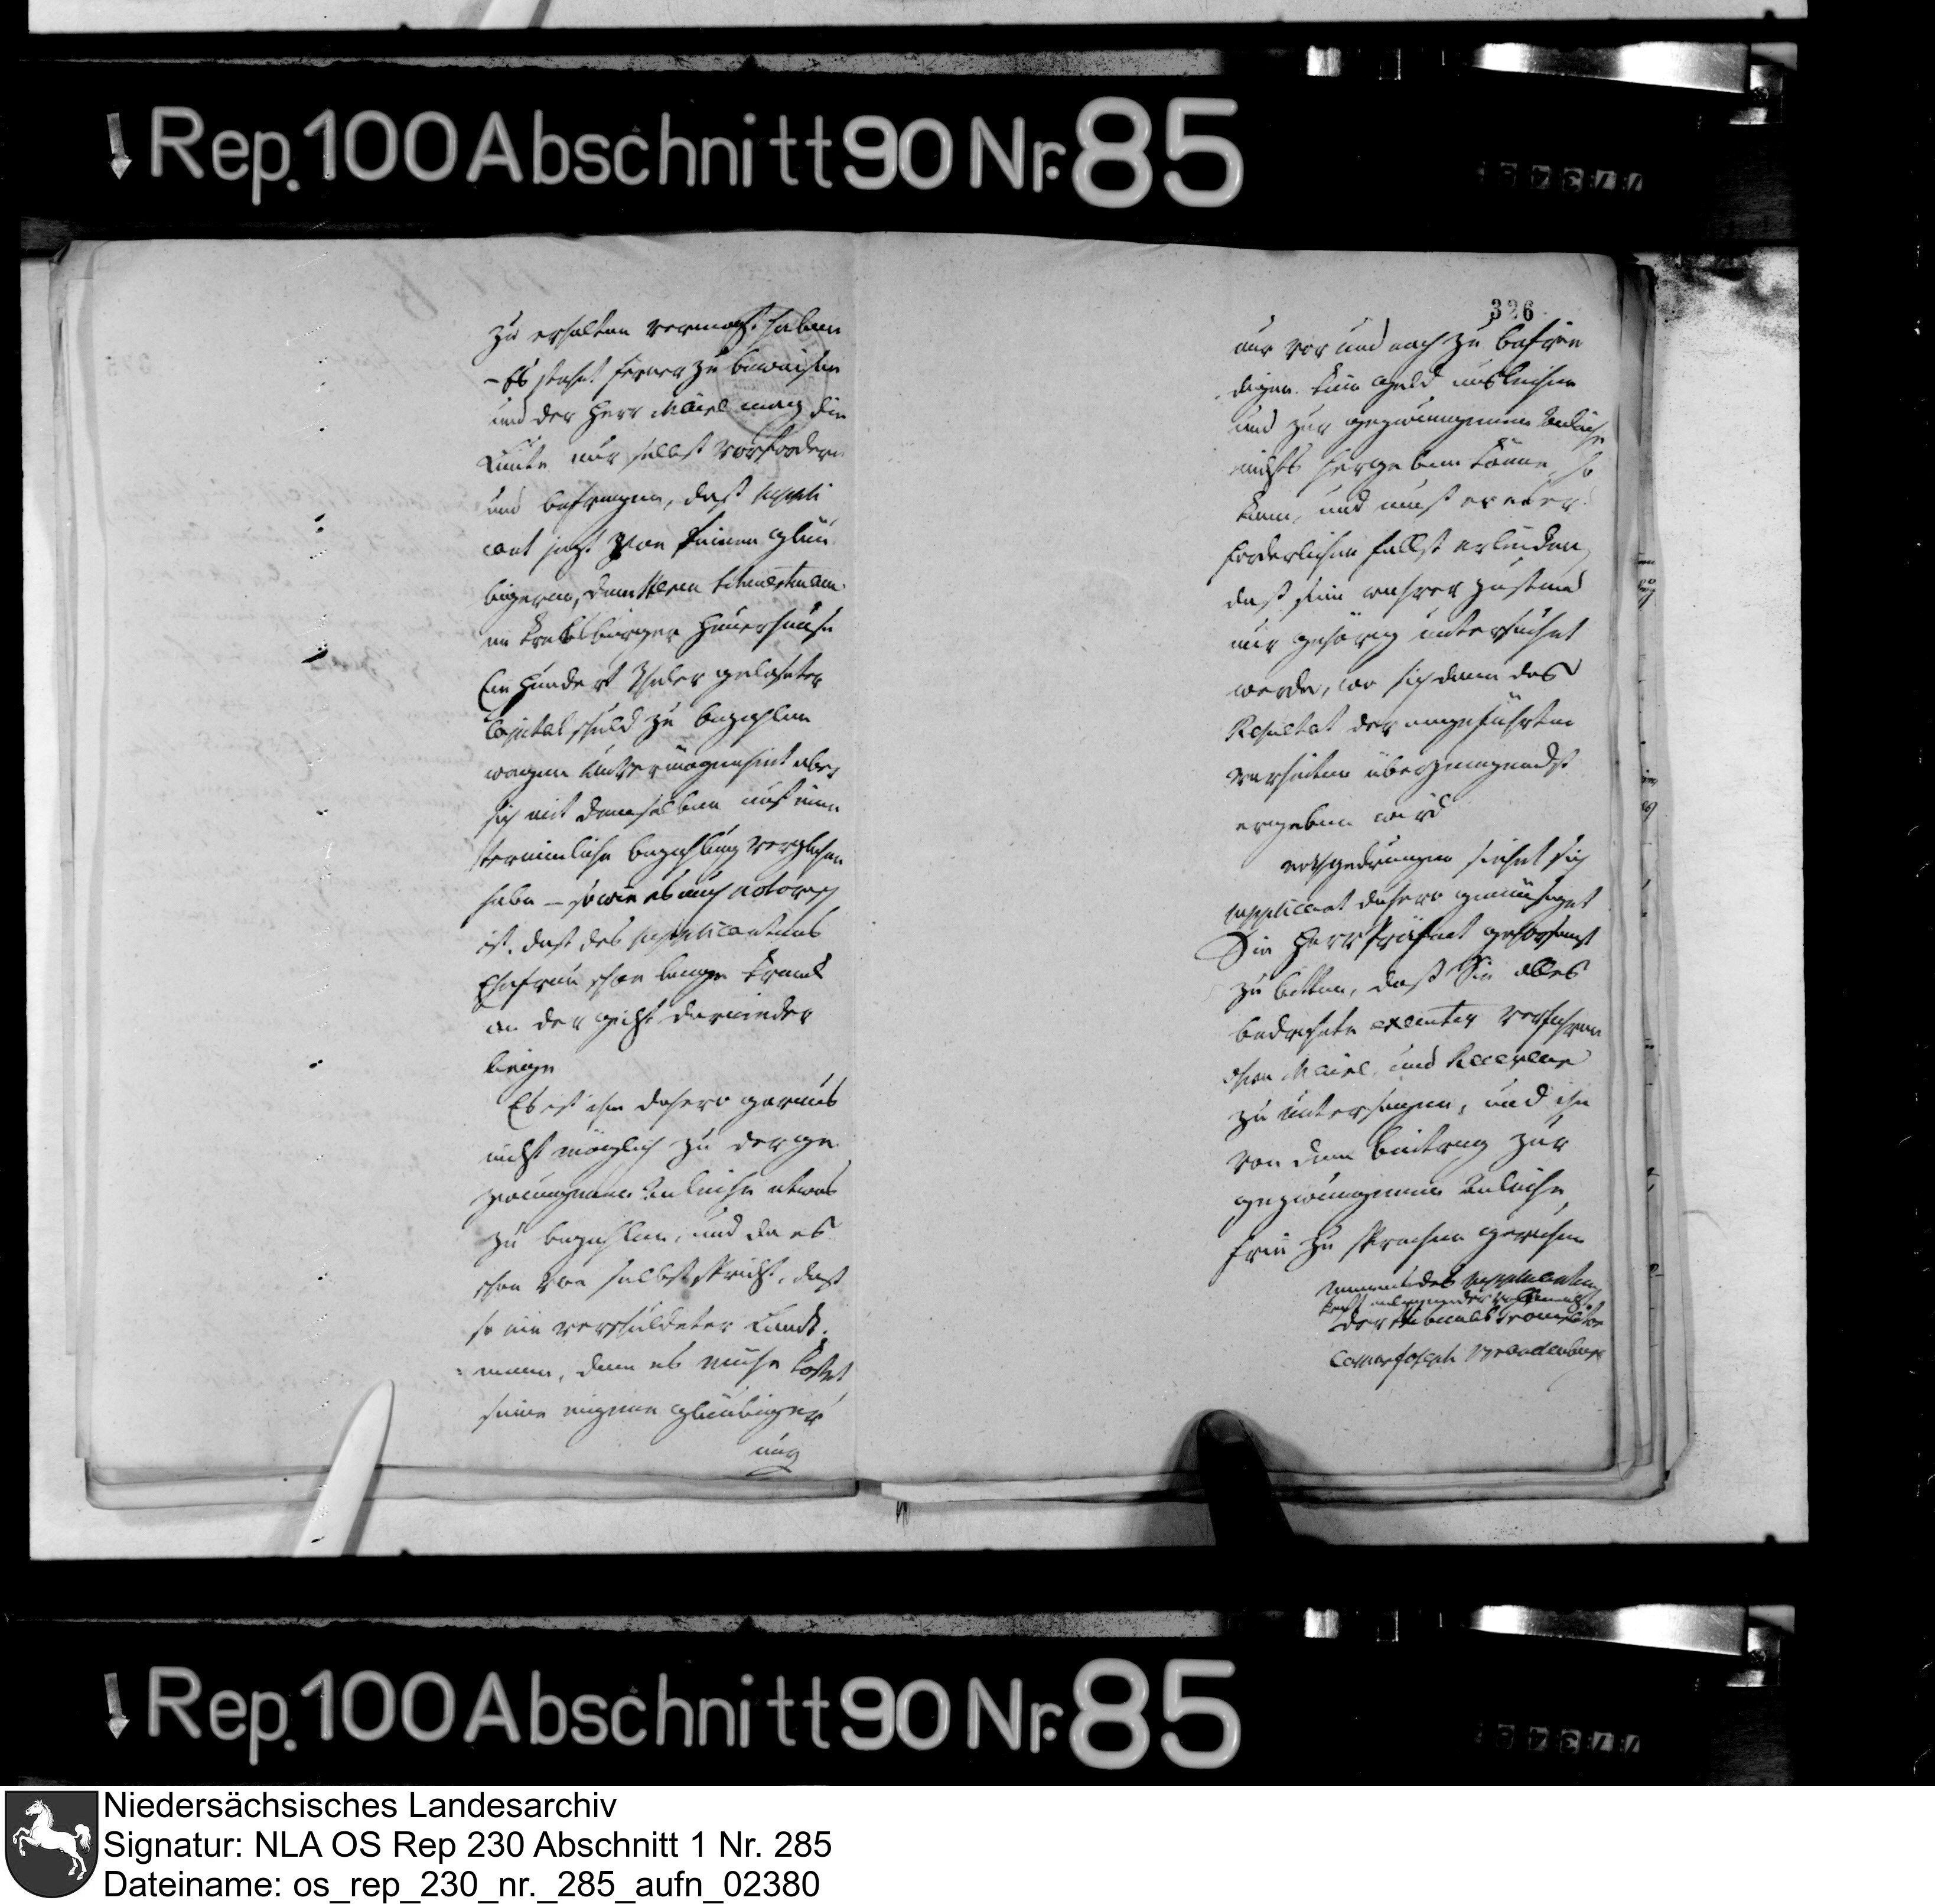 Rep. 100 Abschnitt 90 Nr. 85
zu erhalten vermogt haben
– Es stehet ferner zu beweisen
und der Herr Maire mag die
Leute nur selbst vorfordern
und befragen, daß suppli
cant jezt von seinen gläu
bigern, dem Herrn
im Heuerhause
Ein Hundert Thaler gelehnter
Capital schuld zu bezahlen
wegen Unvermögenheit aber
sich mit demselben auf eine
terminliche bezahlung verglichen
habe – so wie es auch notorisch
ist, daß des supplicantens
Ehefrau schon lange krank
an der gicht darnieder
liege
Es ist ihm dahero garaus
nicht möglich zu der ge
zwungenen Anleihe etwas
zu bezahlen, und da es
schon von selbst spricht, daß
so ein verschuldeter Land
mann, dem es mühe kostet
seine eigene gläubiger
nur
326
nur vor und nach zu befrie
digen kein geld ausleihen
und zur gezwungenen Anleihe
nichts hergeben könne, so
kann, und muß er erfor
derlichen falls erleiden,
daß sein wahrer zustand
nur gehörig untersuchet
werde, wo sich dann das
Resultat der angeführten
wahrheiten überzeugendst
ergeben wird
nothgedrungen siehet sich
supplicant dahero gemüßiget
Die Herr Präfect gehorsamst
zu bitten, daß Sie alles
bedrohete verfahren
dem Maire, und Receveur
zu untersagen, und ihn
von dem beitrag zur
gezwungenen Anleihe,
frei zu sprechen geruhen
Namens des supplicanten
Kraft
der Tribunals
Joseph
Rep. 100 Abschnitt 90 Nr. 85
Niedersächsisches Landesarchiv
Signatur: NLA OS Rep 230 Abschnitt 1 Nr. 285
Dateiname: os_rep_230_nr._285_aufn_02380